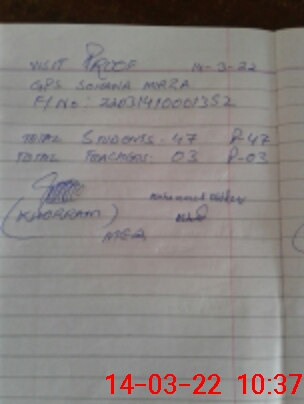 VISIT PROOF 14-3-22
GPS SOHANA MIRZA
F/No: 22031410001352
TOTAL STUDENTS. 47 P-47
TOTAL TEACHERS. 03 P-03
Mohammed
(KHORRAM)
14-03-22 10:37